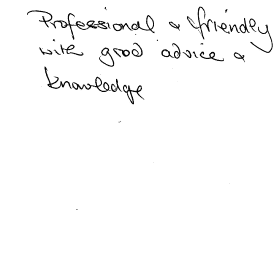 Professional & friendly
with good advice &
knowledge